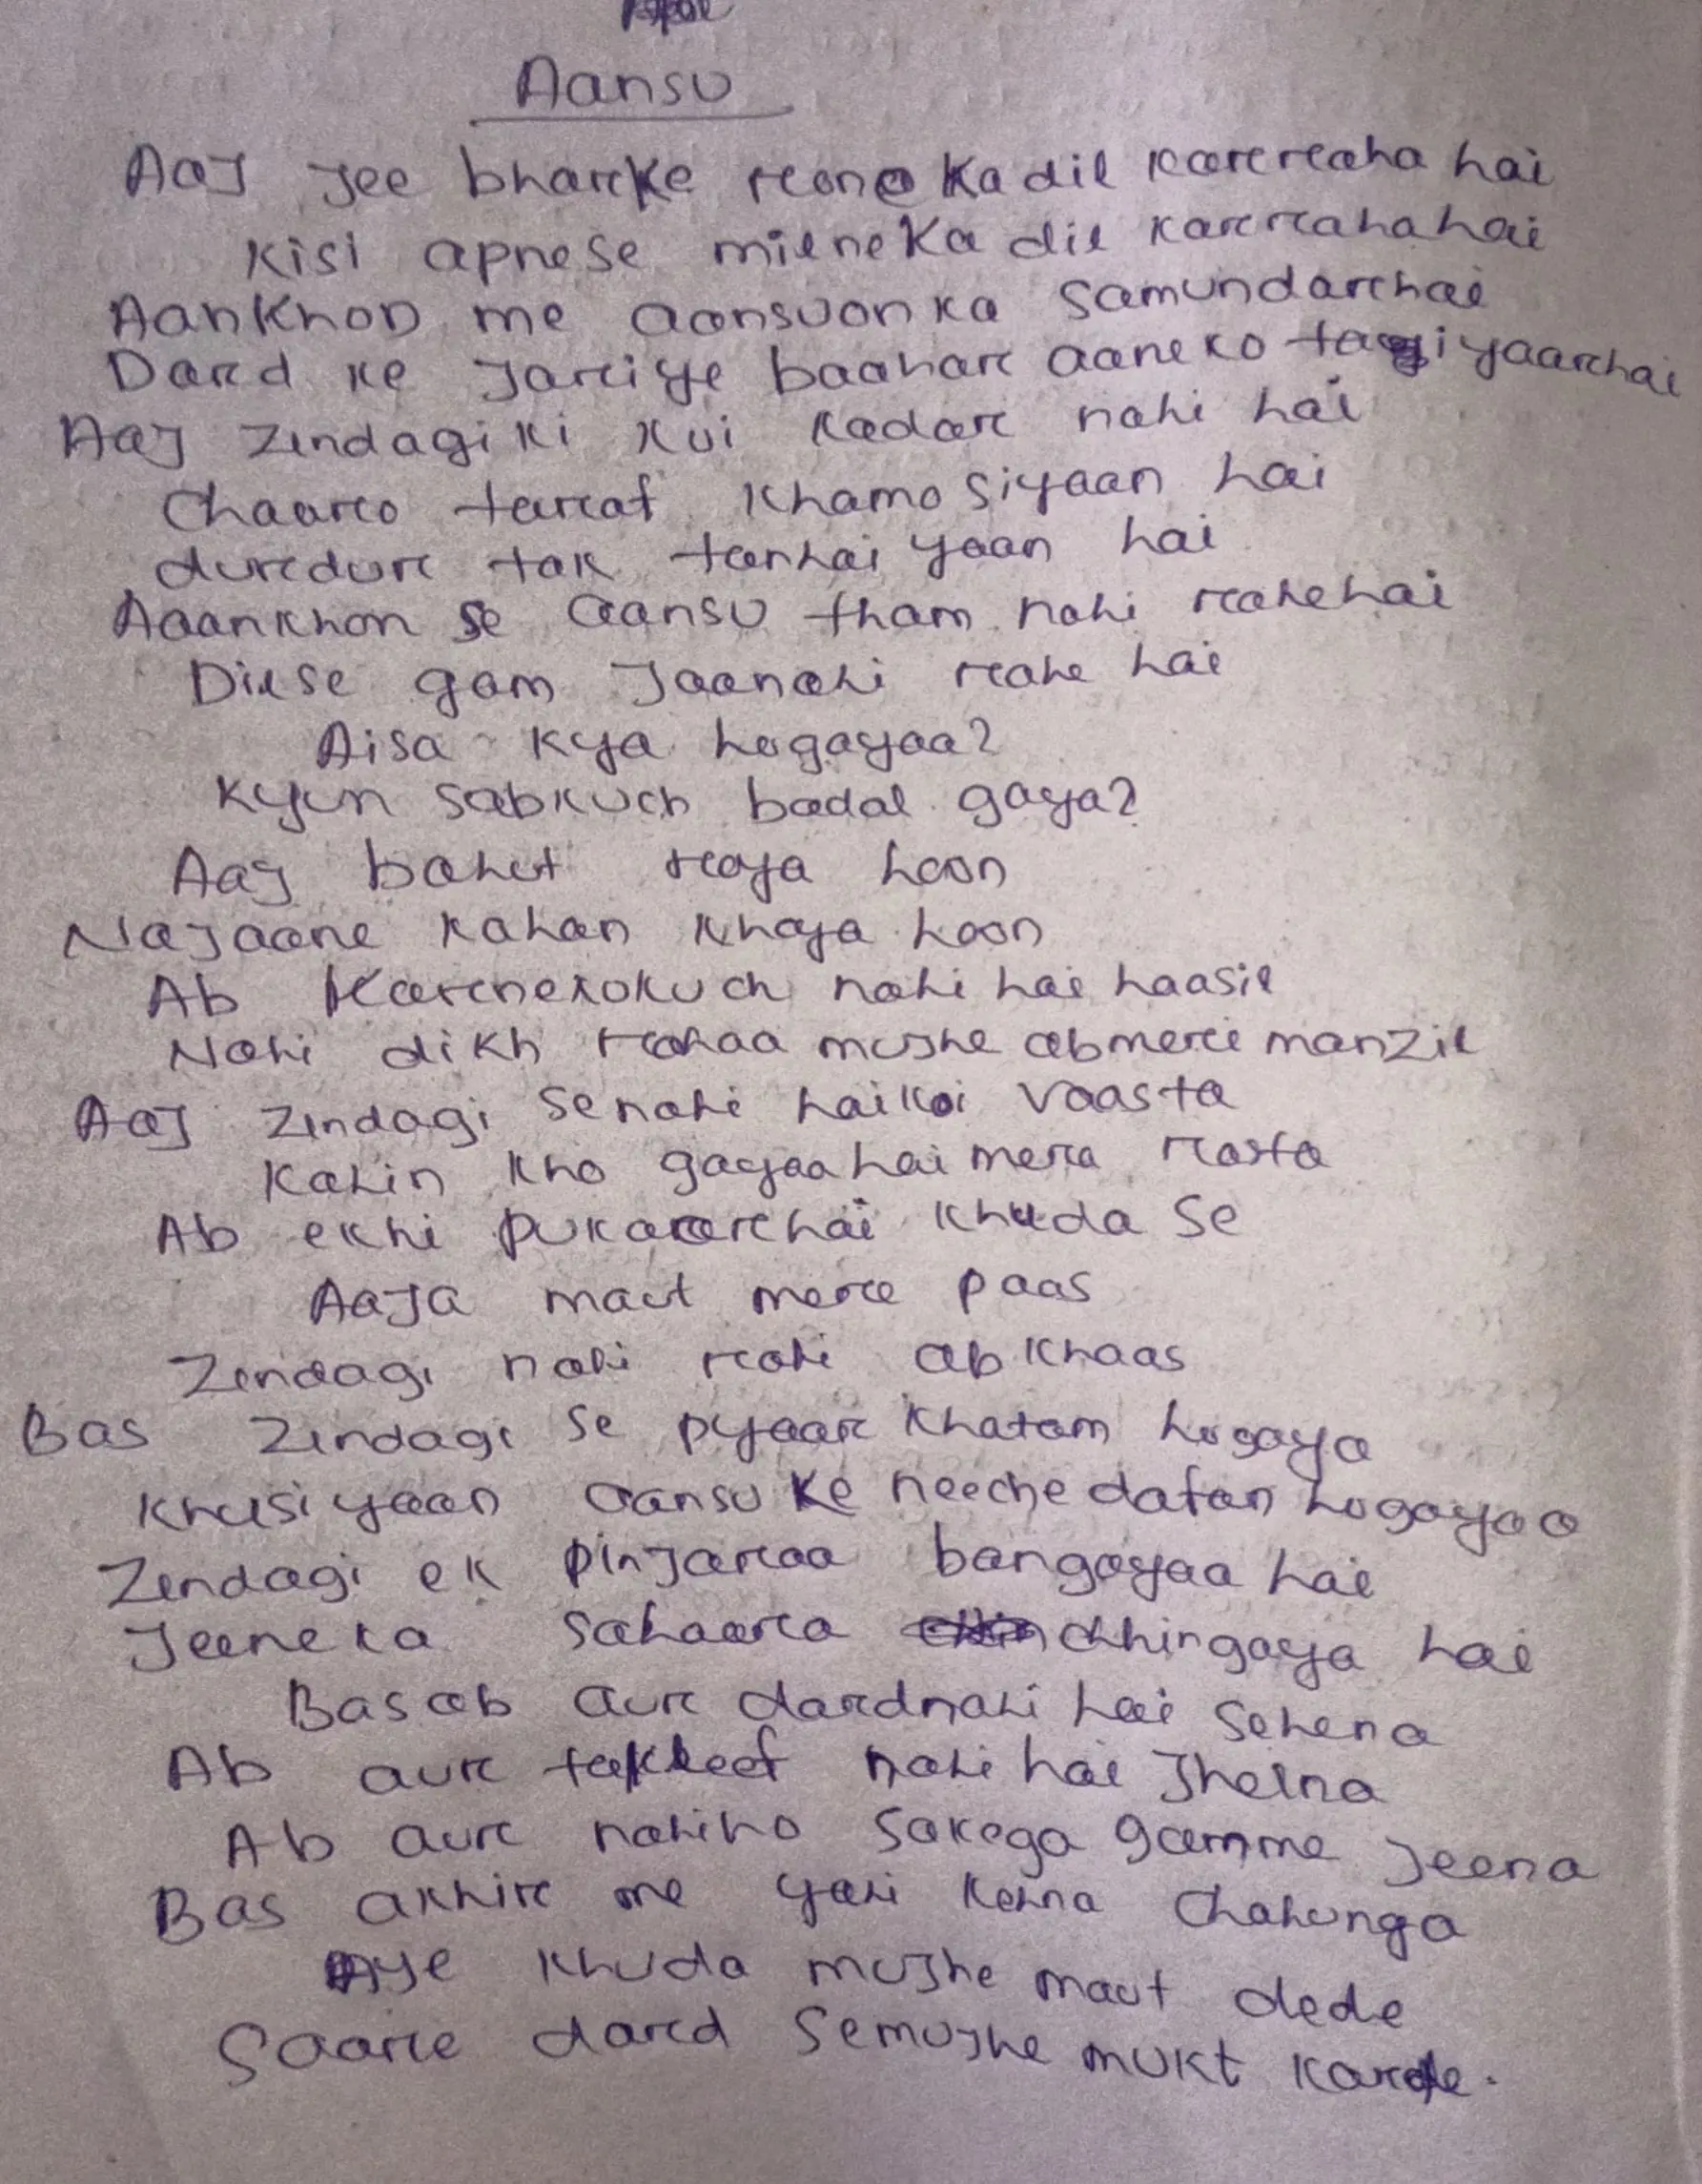 Aansu
Aaj jee bharke rone ka dil kar raha hai
Kisi apnese milne ka dil kar raha hai
Aankhon me aansuon ka samundar hai
Dard ke jariye baahar aane ko taiyaar hai
Aaj zindagi ki kui kadar nahi hai
Chaaro taraf khamosiyaan hai
durdur tak tanhaiyaan hai
Aaankhon se aansu tham nahi rahe hai
Dilse gam jaa nahi rahe hai
Aisa kya hogayaa?
Kyun sabkuch badal gaya?
Aaj bahut roya hoon
Najaane kahan khoya hoon
Ab karne ko kuch nahi hai haasil
Nahi dikh rahaa mujhe ab meri manzil
Aaj zindagi se nahi hai koi vaasta
Kahin kho gayaa hai mera rasta
Ab ek hi pukaar hai khuda se
Aaja maut mere paas
Zindagi nahi rahi ab khaas
Bas zindagi se pyaar khatam hogaya
Khusiyaan aansu ke neeche dafan hogayaa
Zindagi ek pinjaraa bangayaa hai
Jeene ka sahaara chhingaya hai
Bas ab aur dard nahi hai sehena
Ab aur takleef nahi hai jhelna
Ab aur nahi ho sakega gam me jeena
Bas akhir me yahi kehna chahunga
Aye khuda mujhe maut dede
Saare dard se mujhe mukt karde.